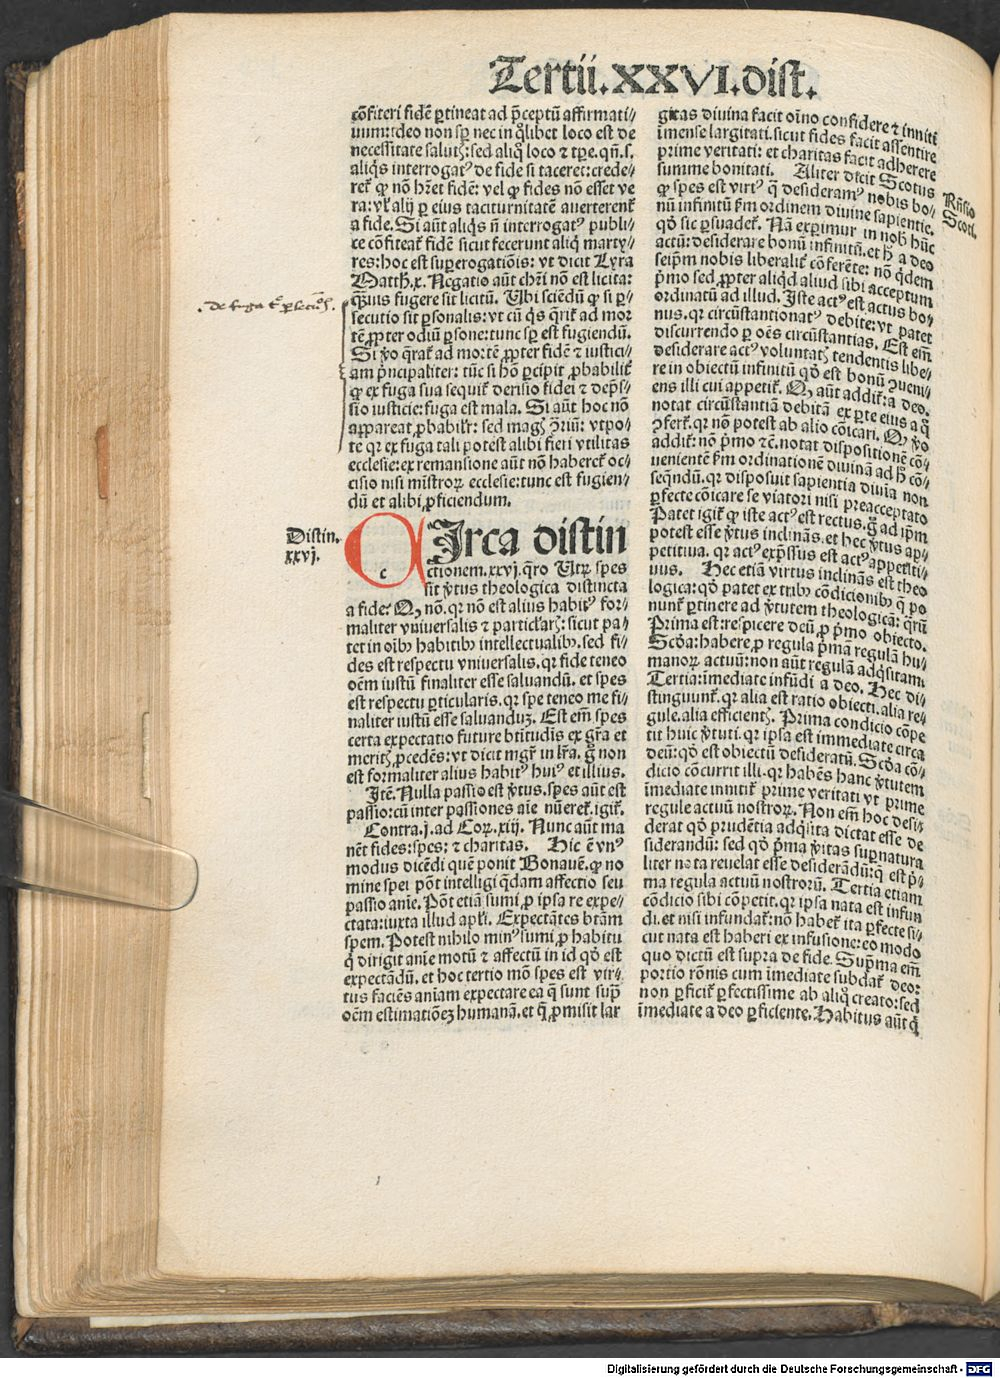 Tertii.XXVI.dist.
cōfiteri fidē ꝑtineat ad p̄ceptū affirmati⸗
uum:ideo non sꝑ nec in q̊libet loco est de
necessitate salutꝭ:sed aliq̊ loco ⁊ tꝑe.qn̄.s.
aliq̇s interrogatꝰ de fide si taceret:crede⸗
ret᷑ ꝙ nō hr̄et fidē: vel ꝙ fides nō esset ve
ra:vl᷑ alij ꝑ eius taciturnitatē auerterent᷑
a fide.Si aūt aliq̇s n̄ interrogatꝰ publi⸗
ce cōfiteat᷑ fidē sicut fecerunt aliq̇ marty⸗
res:hoc est suꝑerogatiōis: vt dicit Lyra
Matth.x. Negatio aūt chr̄i nō est licita:
q̄uis fugere sit licitū. Ubi sciēdū ꝙ si ꝑ⸗
secutio sit ꝑsonalis:vt cū q̇s q̄rit᷑ ad mor
tē ꝓpter odiū ꝑsone:tunc sꝑ est fugiendū.
Si ꝟo q̄rat᷑ ad mortē ꝓpter fidē ⁊ iustici⸗
am p̄ncipaliter: tūc si hō ꝑcipit ꝓbabilit᷑
ꝙ ex fuga sua sequit᷑ derisio fidei ⁊ dep̄s⸗
sio iusticie:fuga est mala. Si aūt hoc nō
appareat ꝓbabilr᷑: sed magꝭ ꝯ̄riū: vtpo⸗
te qr ex fuga tali potest alibi fieri vtilitas
ecclesie:ex remansione aūt nō haberet᷑ oc⸗
cisio nisi mīstroꝝ ecclesie:tunc est fugien⸗
dū et alibi ꝓficiendum.
. de fuga
Distin.
xxvj.
c
Irca distin
ctionem.xxvj.q̄ro Utrꝝ spes
sit ꝟtus theologica distincta
a fide. Ꝙ nō. qr nō est alius habitꝰ for⸗
maliter vniuersalis ⁊ particl̄arꝭ: sicut pa⸗
tet in oībꝫ habitibꝫ intellectualibꝫ.sed fi⸗
des est respectu vniuersalis.qr fide teneo
oēm iustū finaliter esse saluandū. et spes
est respectu ꝑticularis.qr spe teneo me fi⸗
naliter iustū esse saluanduꝫ. Est em̄ spes
certa expectatio future bt̄itudīs ex gr̄a et
meritꝭ ꝓcedēs:vt dicit mgr̄ in lr̄a. g̊ non
est formaliter alius habitꝰ huiꝰ et illius.
Itē. Nulla passio est ꝟtus.spes aūt est
passio:cū inter passiones aīe nūeret᷑.igit᷑.
Contra.j.ad Coꝝ.xiij. Nunc aūt ma
nēt fides:spes: ⁊ charitas. Hic ē vnꝰ
modus dicēdi quē ponit Bonauē.ꝙ no
mine spei pōt intelligi q̇dam affectio seu
passio anīe. Pōt etiā sumi ꝓ ipsa re expe⸗
ctata:iuxta illud apl̄i. Expectātes btām
spem. Potest nihilo minꝰ sumi ꝓ habitu
q̇ dirigit anīe motū ⁊ affectū in id qd̊ est
expectādū. et hoc tertio mō spes est vir⸗
tus faciēs anīam expectare ea q̄ sunt supͣ
oēm estimatiōeꝫ humanā.et q̄ ꝓmisit lar
gitas diuina facit oīno confidere ⁊ inniti
īmense largitati.sicut fides facit assentire
prime veritati: et charitas facit adherere
summe bonitati. Aliter dicit Scotus
ꝙ spes est virtꝰ q̄ desideramꝰ nobis bo⸗
nū infinitū ẜm ordinem diuine sapientie.
qd̊ sic ꝑsuadet᷑. Nā experimur in nob̄ hūc
actū:desiderare bonū infinitū. et h̄ a deo
seip̄m nobis liberalit᷑ cōferēte: nō q̇dem
p̄mo sed ꝓpter aliqd̊ aliud sibi acceptum
ordinatū ad illud. Iste actꝰ est actus bo⸗
nus. qr circūstantionatꝰ debite:vt patet
discurrendo ꝑ oēs circūstantias. Est em̄
desiderare actꝰ voluntatꝭ tendentis libe⸗
re in obiectū infinitū qd̊ est bonū ꝯueni⸗
ens illi cui appetit᷑. Ꝙ aūt addit᷑: a deo.
notat circūstantiā debitā ex ꝑte eius a q̊
ꝯfert᷑.qr nō potest ab alio cōicari. Ꝙ ꝟo
addit᷑: nō p̄mo ⁊c. notat dispositionē cō⸗
uenientē ẜm ordinationē diuinā ad h̄ cō⸗
seq̄ndū. qr disposuit sapientia diuina non
ꝑfecte cōicare se viatori nisi preacceptato
Patet igit᷑ ꝙ iste actꝰ est rectus. g̊ ad ip̄m
potest esse ꝟtus inclināt. et hec ꝟtus ap⸗
petitiua. qr actꝰ exp̄ssus est actꝰ appetiti⸗
uus. Hec etiā virtus inclināt est theo
logica: qd̊ patet ex tribꝫ cōdicionibꝫ q̄ po
nunt᷑ ꝑtinere ad ꝟtutem theologicā: qrū
Prima est:respicere deū ꝓ p̄mo obiecto.
Scd̊a:habere ꝓ regula p̄mā regulā hu⸗
manoꝝ actuū:non aūt regulā adq̇sitam
Tertia:īmediate infūdi a deo. Hec di⸗
stinguunt᷑. qr alia est ratio obiecti.alia re⸗
gule.alia efficientꝭ. Prima condicio cōpe
tit huic ꝟtuti. qr ipsa est immediate circa
deū:qd̊ est obiectū desideratū. Scd̊a cō⸗
dicio cōcurrit illi.qr habēs hanc ꝟtutem
īmediate innitit᷑ prime veritati vt prime
regule actuū nostroꝝ. Non em̄ hoc desi⸗
derat qd̊ prudētia adq̇sita dictat esse de
siderandū: sed qd̊ p̄ma ꝟitas supͣnatura
liter nata reuelat esse desiderādū:q̄ est p̄⸗
ma regula actuū nostrorū. Tertia etiam
cōdicio sibi cōpetit.qr ipsa nata est infun
di. et nisi infundat᷑:nō habet᷑ ita ꝑfecte si⸗
cut nata est haberi ex infusione:eo modo
quo dictū est supra de fide. Suꝑma em̄
portio rōnis cum īmediate subdat᷑ deo:
non ꝑficit᷑ ꝑfectissime ab aliq̊ creato:sed
īmediate a deo ꝑficiente. Habitus aūt q̇
Rn̄sio
Scoti.
Digitalisierung gefördert durch die Deutsche Forschungsgemeinschaft - DFG